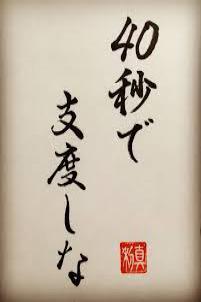 40秒で
支度しな